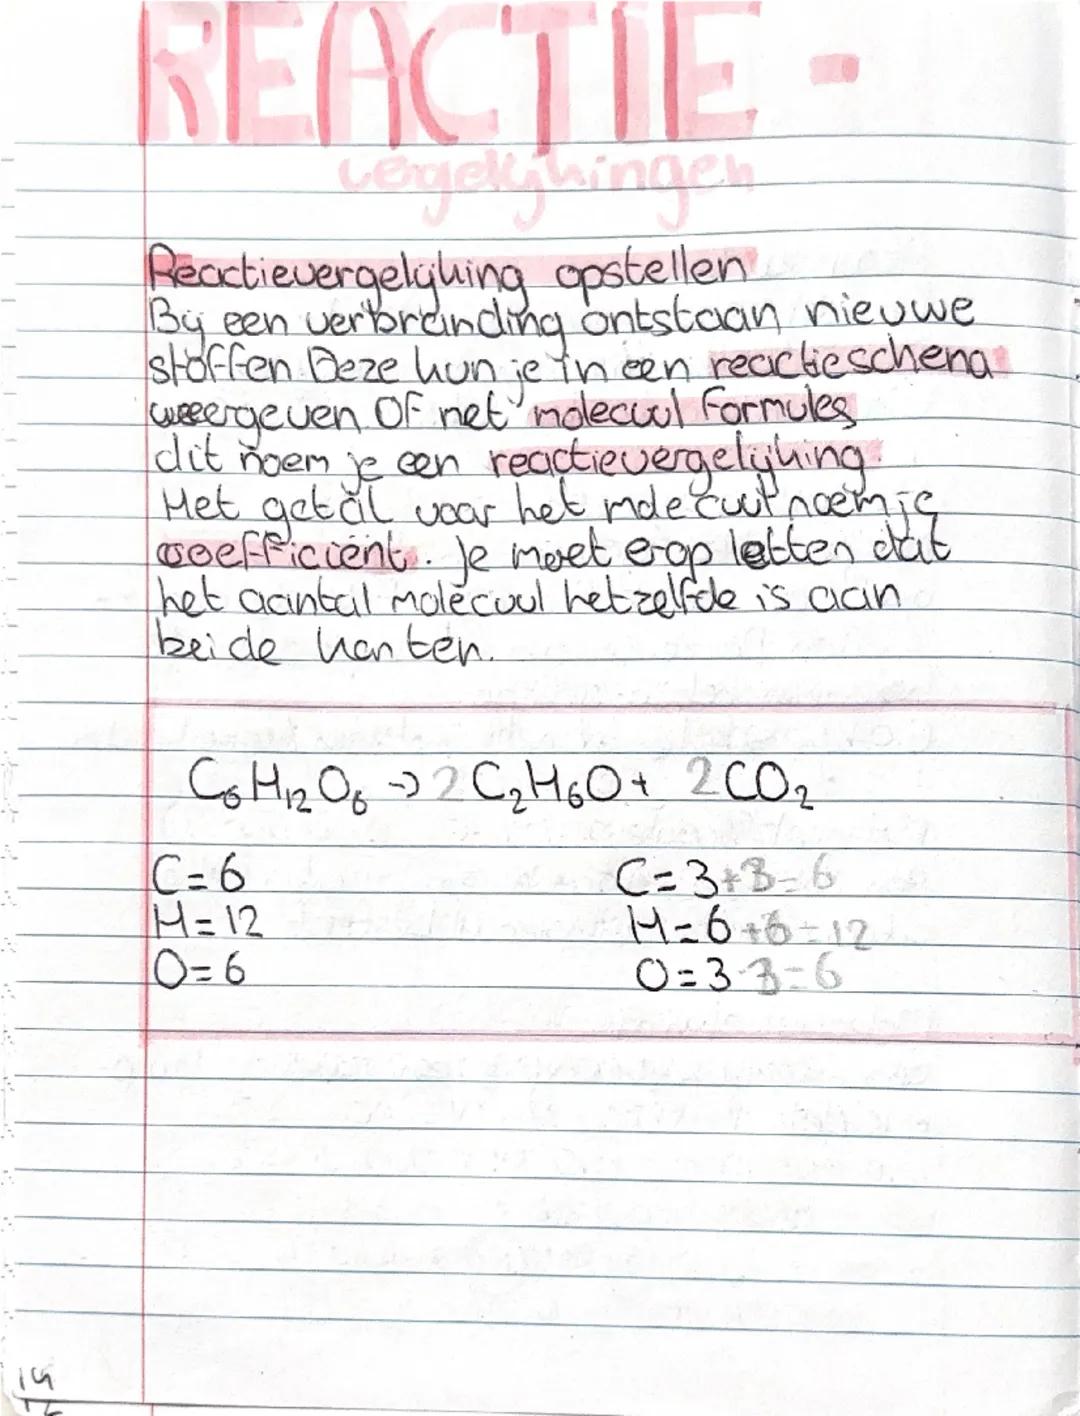 REACTIE-
vergelijkingen
Reactievergelijking opstellen
Bij een verbranding ontstaan nieuwe
stoffen Deze kun je in een reactieschema
weergeven OF met molecuul formules
dit noem je een reactievergelijking.
Het getal voor het molecuul noem je
coefficiënt. Je moet erop letten dat
het aantal molecuul hetzelfde is aan
beide kanten.
C₆H₁₂O₆ → 2 C₂H₆O + 2 CO₂
C=6 C=3+3=6
H=12 H=6+6=12
O=6 O=3 3=6